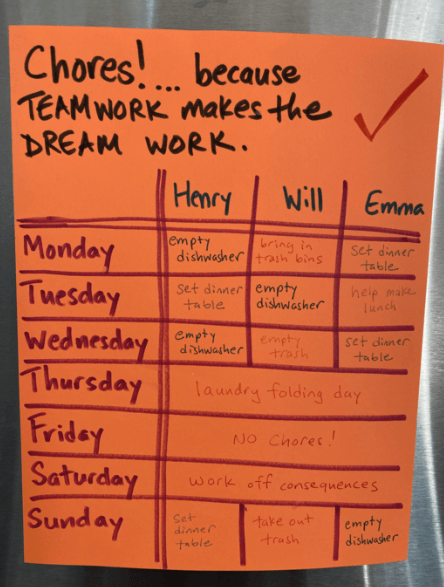 Chores!... because
TEAMWORK makes the
DREAM WORK.
Henry Will Emma
Monday
empty
dishwasher
bring in
trash bins
set dinner
table
Tuesday
set dinner
table
empty
dishwasher
help make
lunch
Wednesday
empty
dishwasher
empty
trash
set dinner
table
Thursday
laundry folding day
Friday
NO Chores!
Saturday
work off consequences
Sunday
set
dinner
table
take out
trash
empty
dishwasher